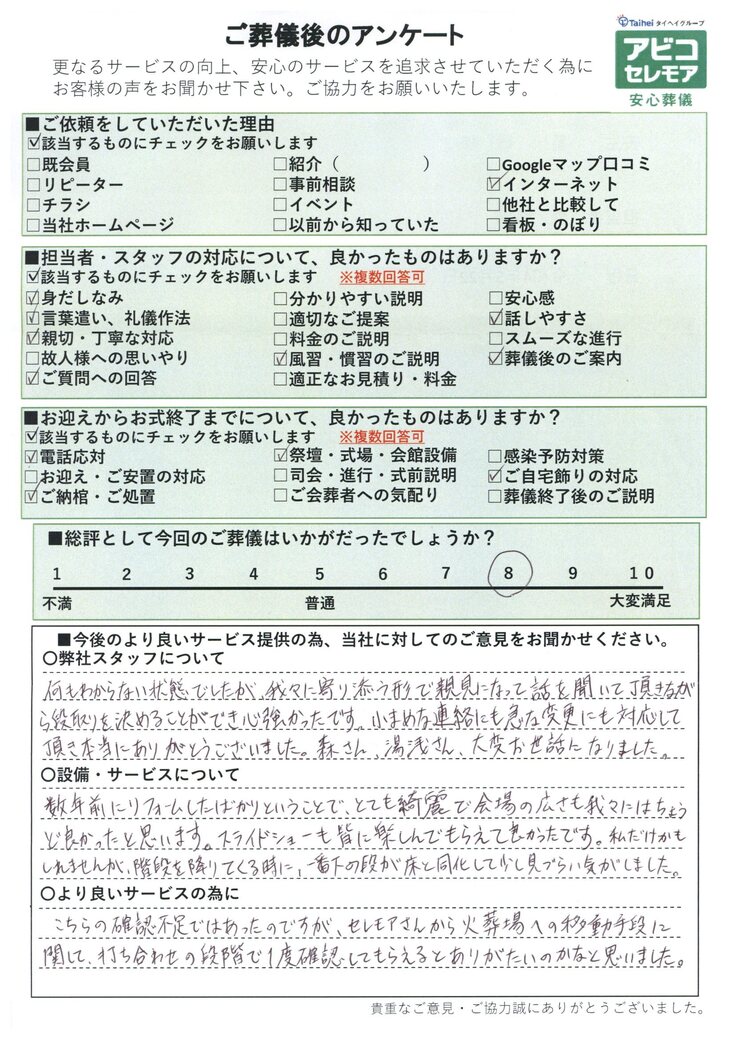 ご葬儀後のアンケート
Taihei タイヘイグループ
アビコ
セレモア
安心葬儀
更なるサービスの向上、安心のサービスを追求させていただく為に
お客様の声をお聞かせ下さい。ご協力をお願いいたします。
■ご依頼をしていただいた理由
☑該当するものにチェックをお願いします
□既会員 □紹介（　　　　　） □Googleマップ口コミ
□リピーター □事前相談 ☑インターネット
□チラシ □イベント □他社と比較して
□当社ホームページ □以前から知っていた □看板・のぼり
■担当者・スタッフの対応について、良かったものはありますか？
☑該当するものにチェックをお願いします ※複数回答可
☑身だしなみ □分かりやすい説明 □安心感
☑言葉遣い、礼儀作法 □適切なご提案 ☑話しやすさ
☑親切・丁寧な対応 □料金のご説明 □スムーズな進行
□故人様への思いやり ☑風習・慣習のご説明 ☑葬儀後のご案内
☑ご質問への回答 □適正なお見積り・料金
■お迎えからお式終了までについて、良かったものはありますか？
☑該当するものにチェックをお願いします ※複数回答可
☑電話応対 ☑祭壇・式場・会館設備 □感染予防対策
□お迎え・ご安置の対応 □司会・進行・式前説明 ☑ご自宅飾りの対応
☑ご納棺・ご処置 □ご会葬者への気配り □葬儀終了後のご説明
■総評として今回のご葬儀はいかがだったでしょうか？
1 2 3 4 5 6 7 8 9 10
不満 普通 大変満足
■今後のより良いサービス提供の為、当社に対してのご意見をお聞かせください。
〇弊社スタッフについて
何もわからない状態でしたが、我々に寄り添う形で親身になって話を聞いて頂きなが
ら段取りを決めることができ心強かったです。小まめな連絡にも急な変更にも対応して
頂き本当にありがとうございました。森さん、湯浅さん、大変お世話になりました。
〇設備・サービスについて
数年前にリフォームしたばかりということで、とても綺麗で会場の広さも我々にはちょう
ど良かったと思います。スライドショーも皆に楽しんでもらえて良かったです。私だけかも
しれませんが、階段を降りてくる時に、一番下の段が床と同化して少し見づらい気がしました。
〇より良いサービスの為に
こちらの確認不足ではあったのですが、セレモアさんから火葬場への移動手段に
関して、打ち合わせの段階で1度確認してもらえるとありがたいのかなと思いました。
貴重なご意見・ご協力誠にありがとうございました。